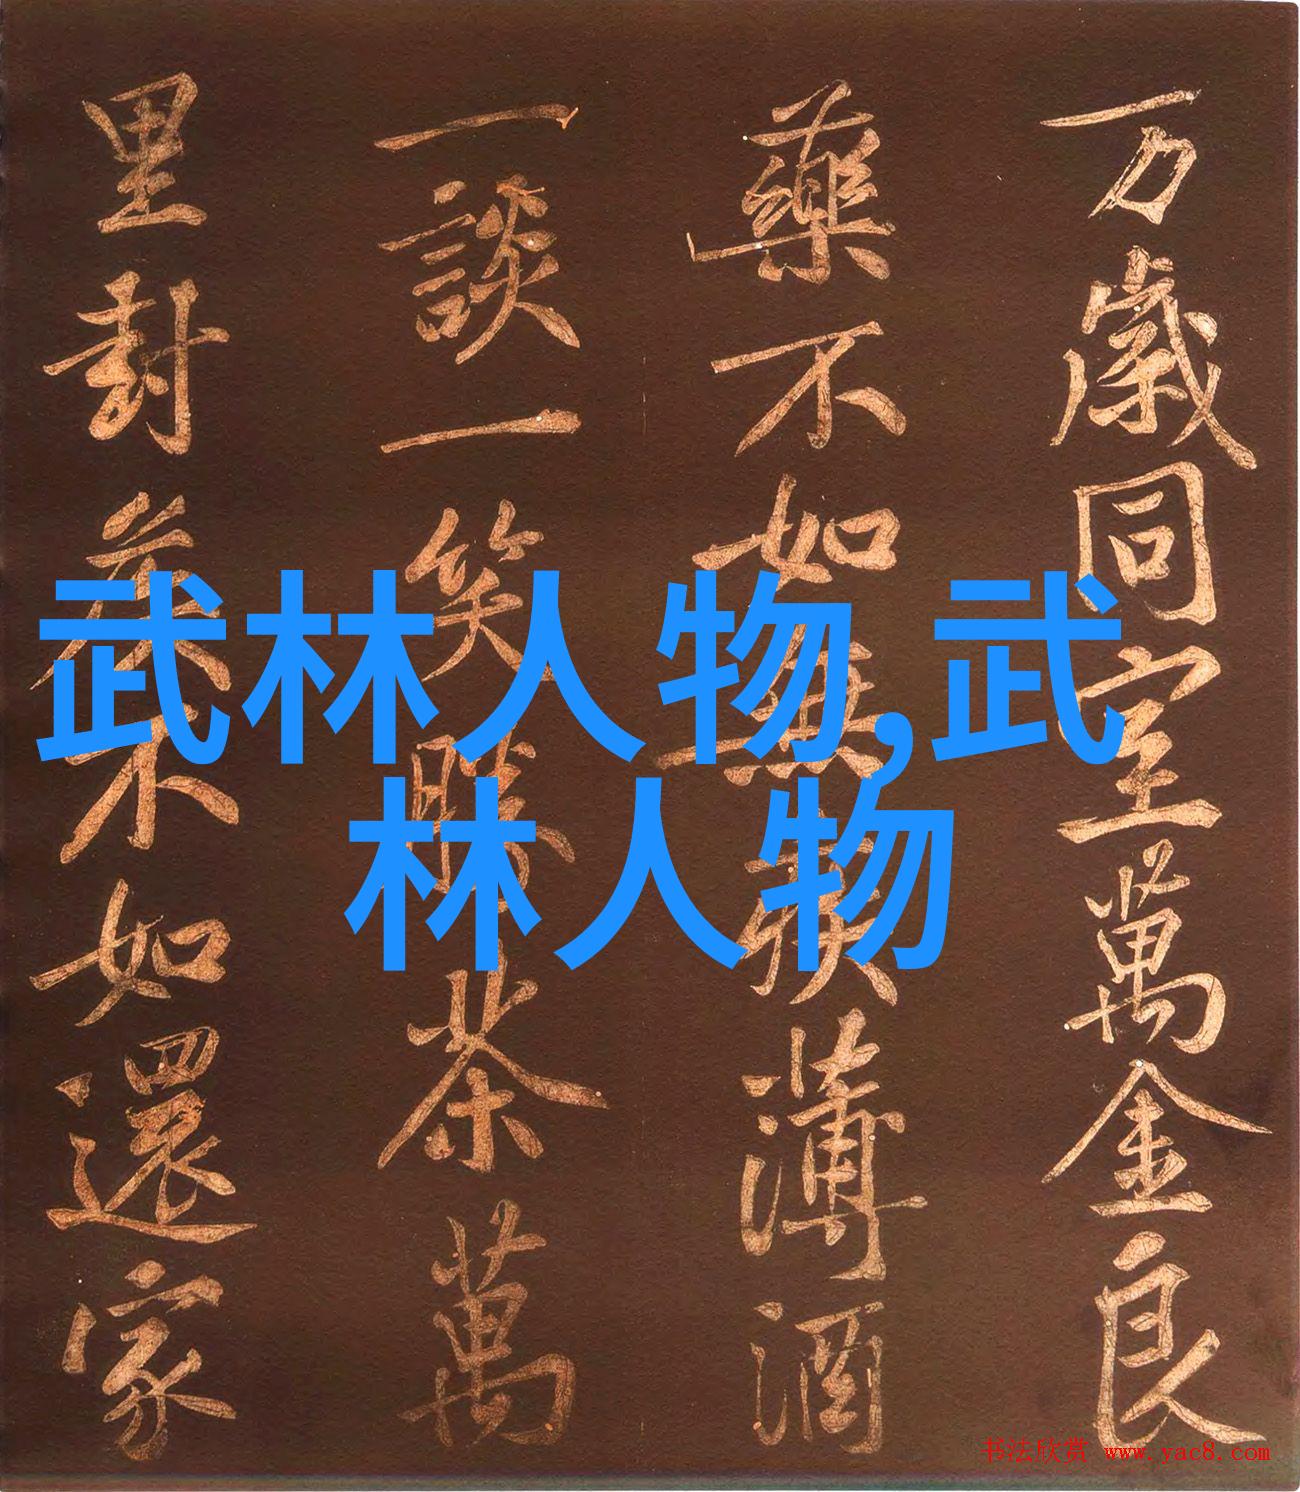 万歲同室萬金良
藥不如無疾薄酒
一談一笑勝茶萬
里封侯不如還家
武林人物,武
林人物
书法欣赏 www.yac8.com